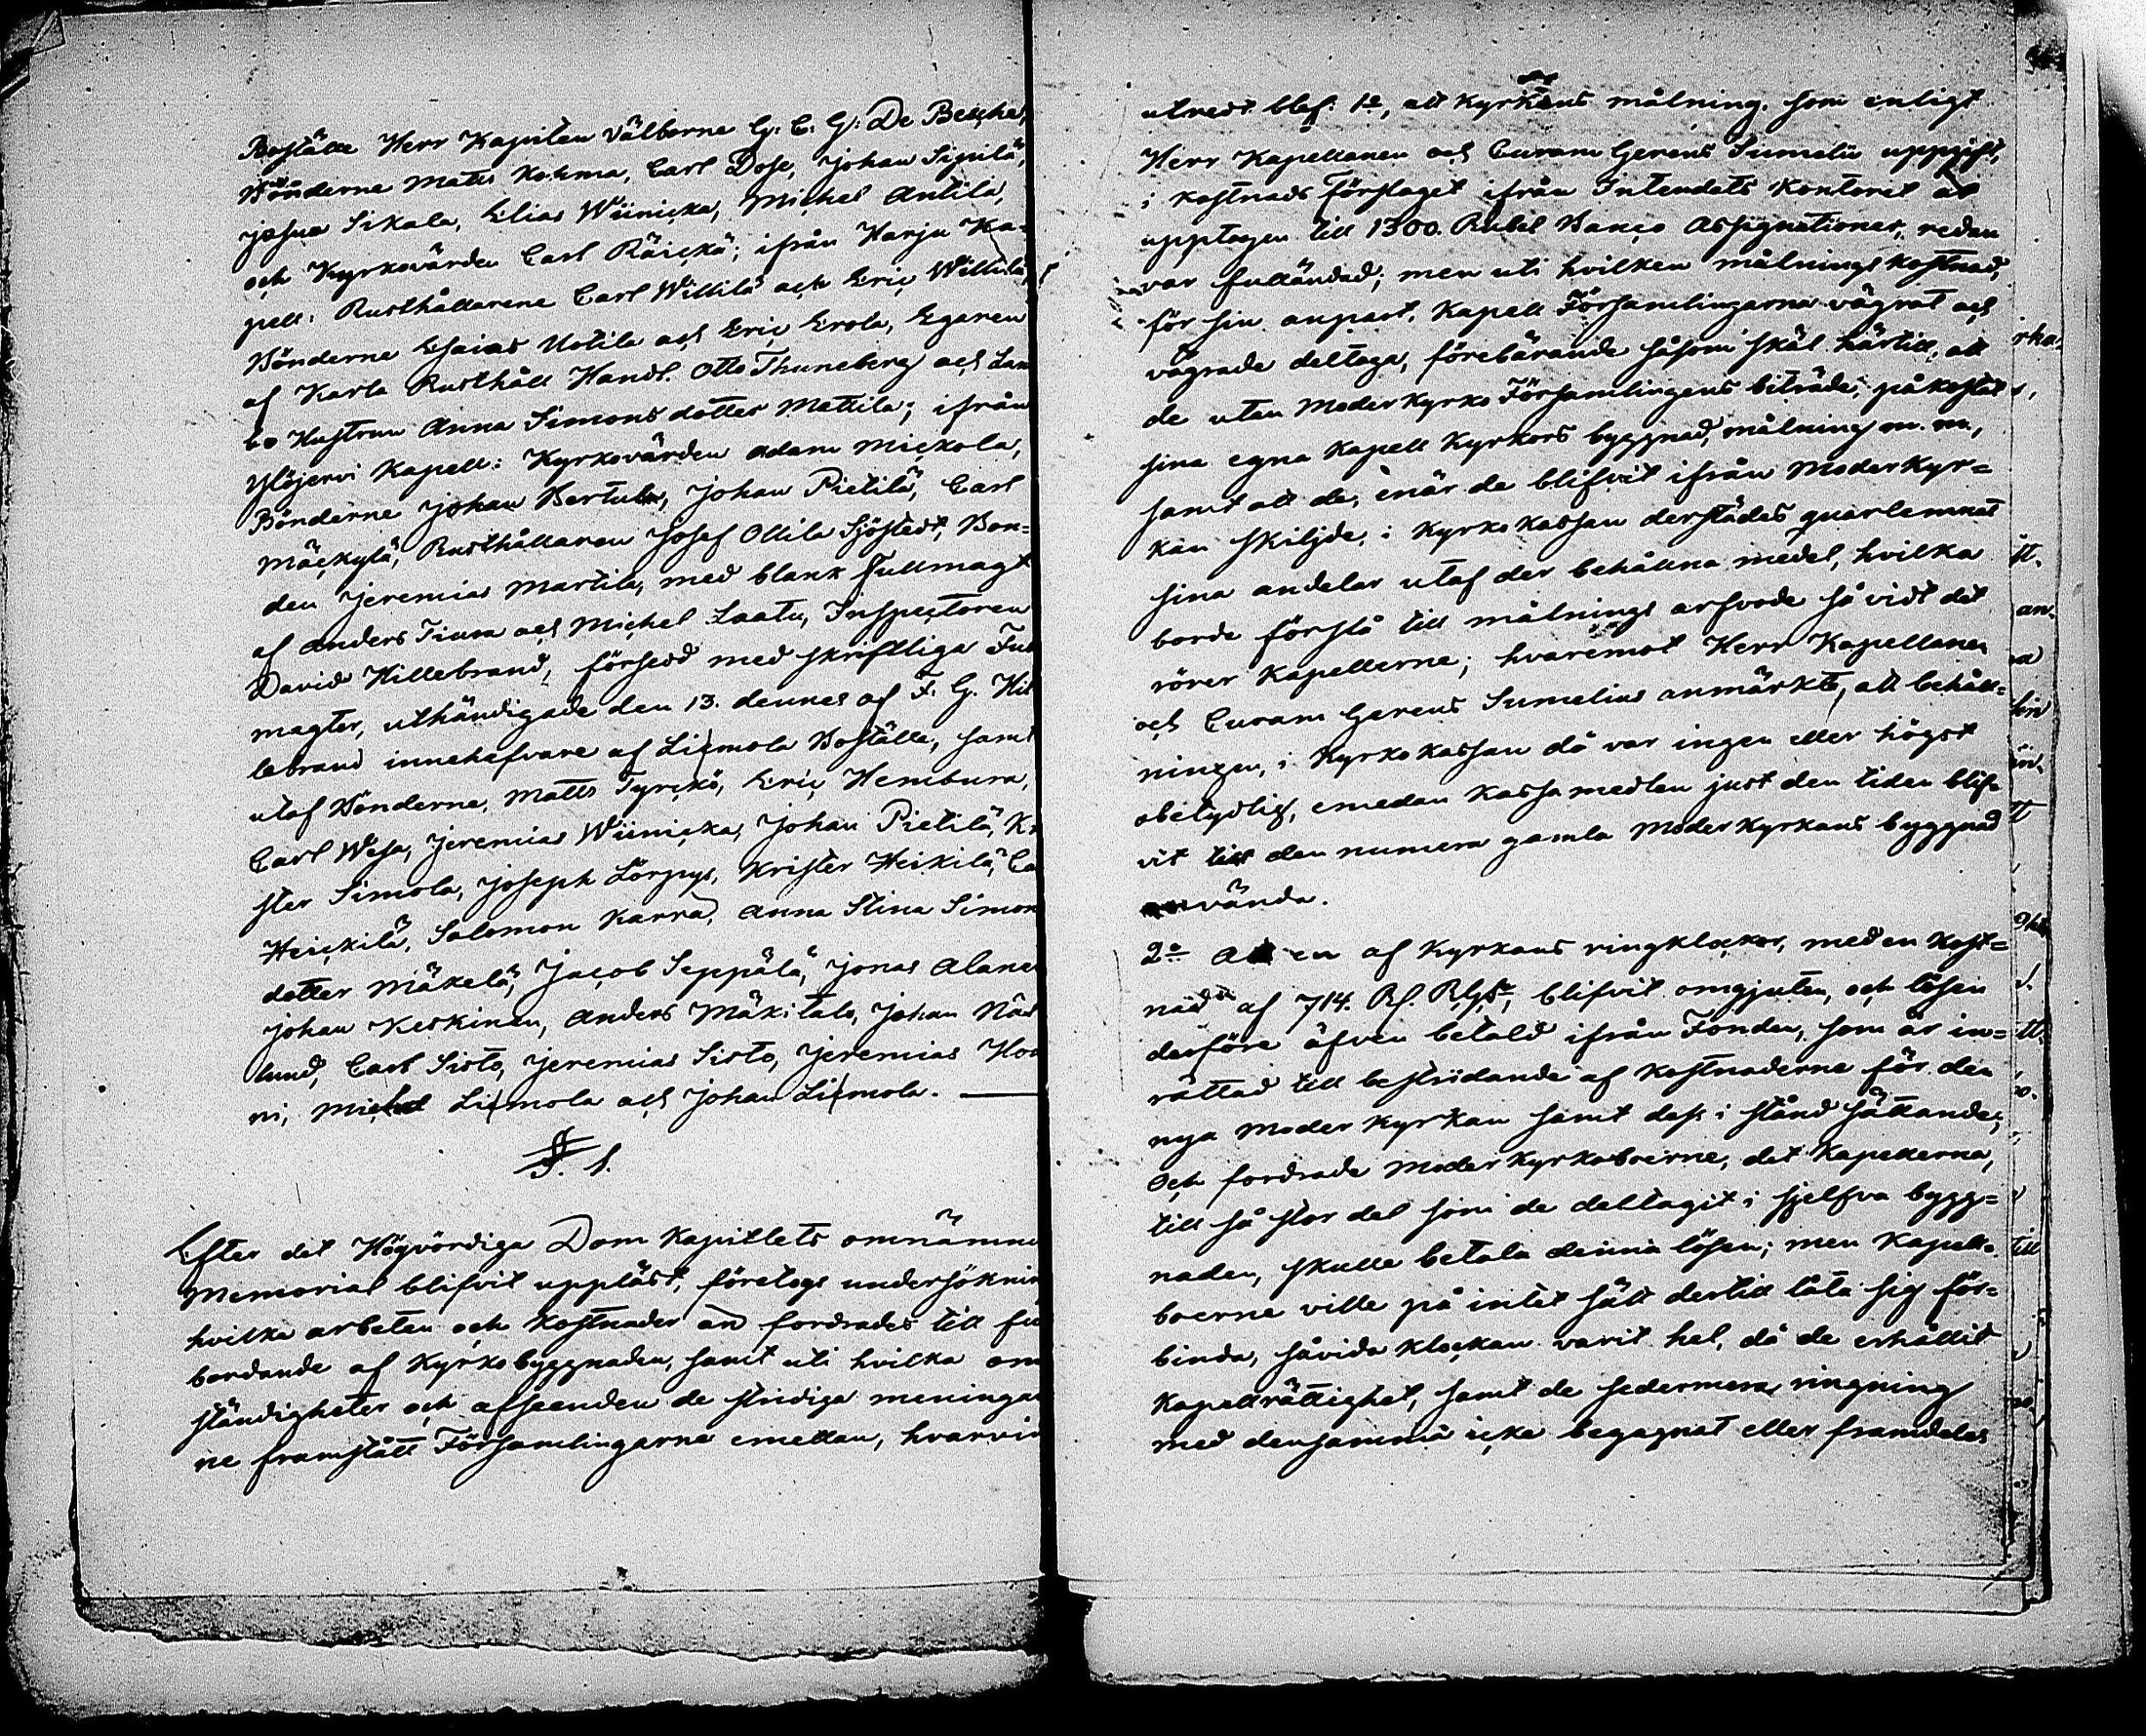 Boställe Herr Kapiten Välborne G: C: G: De Besche,
Bönderne Matts Kohma, Carl Dose, Johan Sipilä,
Josua Sikala, Elias Wiinicka, Michel Antila,
och Kyrkovärden Carl Räickä; ifrån Harju Ka-
pell: Rusthållarene Carl Willilä och Eric Willilä,
Bönderne Esaias Uotila och Eric Erola, Egaren
af Karla Rusthåll Handl. Otto Thuneberg och
bo Hustrun Anna Simons dotter Mattila; ifrån
Ylöjervi Kapell: Kyrkovärden Adam Mickola,
Bönderne Johan Bertula, Johan Pietilä, Carl
Mäckylä, Rusthållaren Josef Ollila Sjöstedt, Bon-
den Jeremias Martila, med blank Fullmagt
af Anders Tiura och Michel Laatu, Inspectoren
David Hillebrand, försedd med skriftliga Ful
magter, uthändigade den 13. dennes af F. G. Hil
lebrand innehafvare af Liemola Boställe, samt
utaf Bönderne, Matts Tyrckö, Eric Hembura,
Carl Wesa, Jeremias Wiinicka, Johan Pietilä, K
ster Simola, Joseph Lörpys, Krister Heikilä, Ca
Heickilä, Salomon Karra, Anna Stina Simon
dotter Mäkelä, Jacob Seppälä, Jonas Alane
Johan Keskinen, Anders Mäkitalo, Johan Näs
lund, Carl Sisto, Jeremias Sisto, Jeremias Hor
ni, Michel Liemola och Johan Liemola.
§. 1.
Efter det Högvördiga Dom Kapitlets omnämn
Memorial blifvit uppläst, företogs undersöknin
hvilka arbeten och kostnader än fordrades till ful
bordande af Kyrkobyggnaden, samt uti hvilka om
ständigheter och afseenden de stridiga meninga
ne framstått Församlingarne emellan, hvarvid
utredt blef: 1o, att Kyrkans målning, som enligt
Herr Kapellanen och Curam Gerens Sumelii uppgift,
i kostnads Förslaget ifrån Intendets Kontoret är
upptagen till 1300. Rubel Banco Assignationer, redan
var fulländad; men uti hvilken målnings kostnad,
för sin anpart, Kapell Församlingarna vägrat och
vägrade deltaga, förebärande såsom skäl härtill, att
de utan Moderkyrko Församlingens biträde, påkostat
sina egna Kapell Kyrkors byggnad, målning m. m,
samt att de, enär de blifvit ifrån Moderkyr-
kan skiljde, i Kyrkokassan derstädes quarlemnat
sina andelar utaf der behållna medel, hvilka
borde förslå till målnings arfvode så vidt det
rörer Kapellerne; hvaremot Herr Kapellanen
och Curam Gerens Sumelius anmärkte, att behåll-
ningen, i Kyrkokassan då var ingen eller högst
obetydlig, emedan Kassamedlen just den tiden blif-
vit till den numera gamla Moderkyrkans byggnad
använda.
2o Att en af Kyrkans ringklockor, med en kost-
nad af 714. Rf. Rgs, blifvit omgjuten, och lösen
derföre äfven betald ifrån Fonden, som är in-
rättad till bestridande af kostnaderne för den
nya Moderkyrkan samt dess i stånd sättande,
Och fordrade Moderkyrkoboerne, det Kapellerna,
till så stor del som de deltagit i sjelfva bygg-
naden, skulle betala denna lösen; men Kapell-
boerne ville på intet sätt dertill låta sig för-
binda, såvida klockan varit hel, då de erhållit
Kapellrättighet, samt de sedermera ringning
med densamma icke begagnat eller framdeles